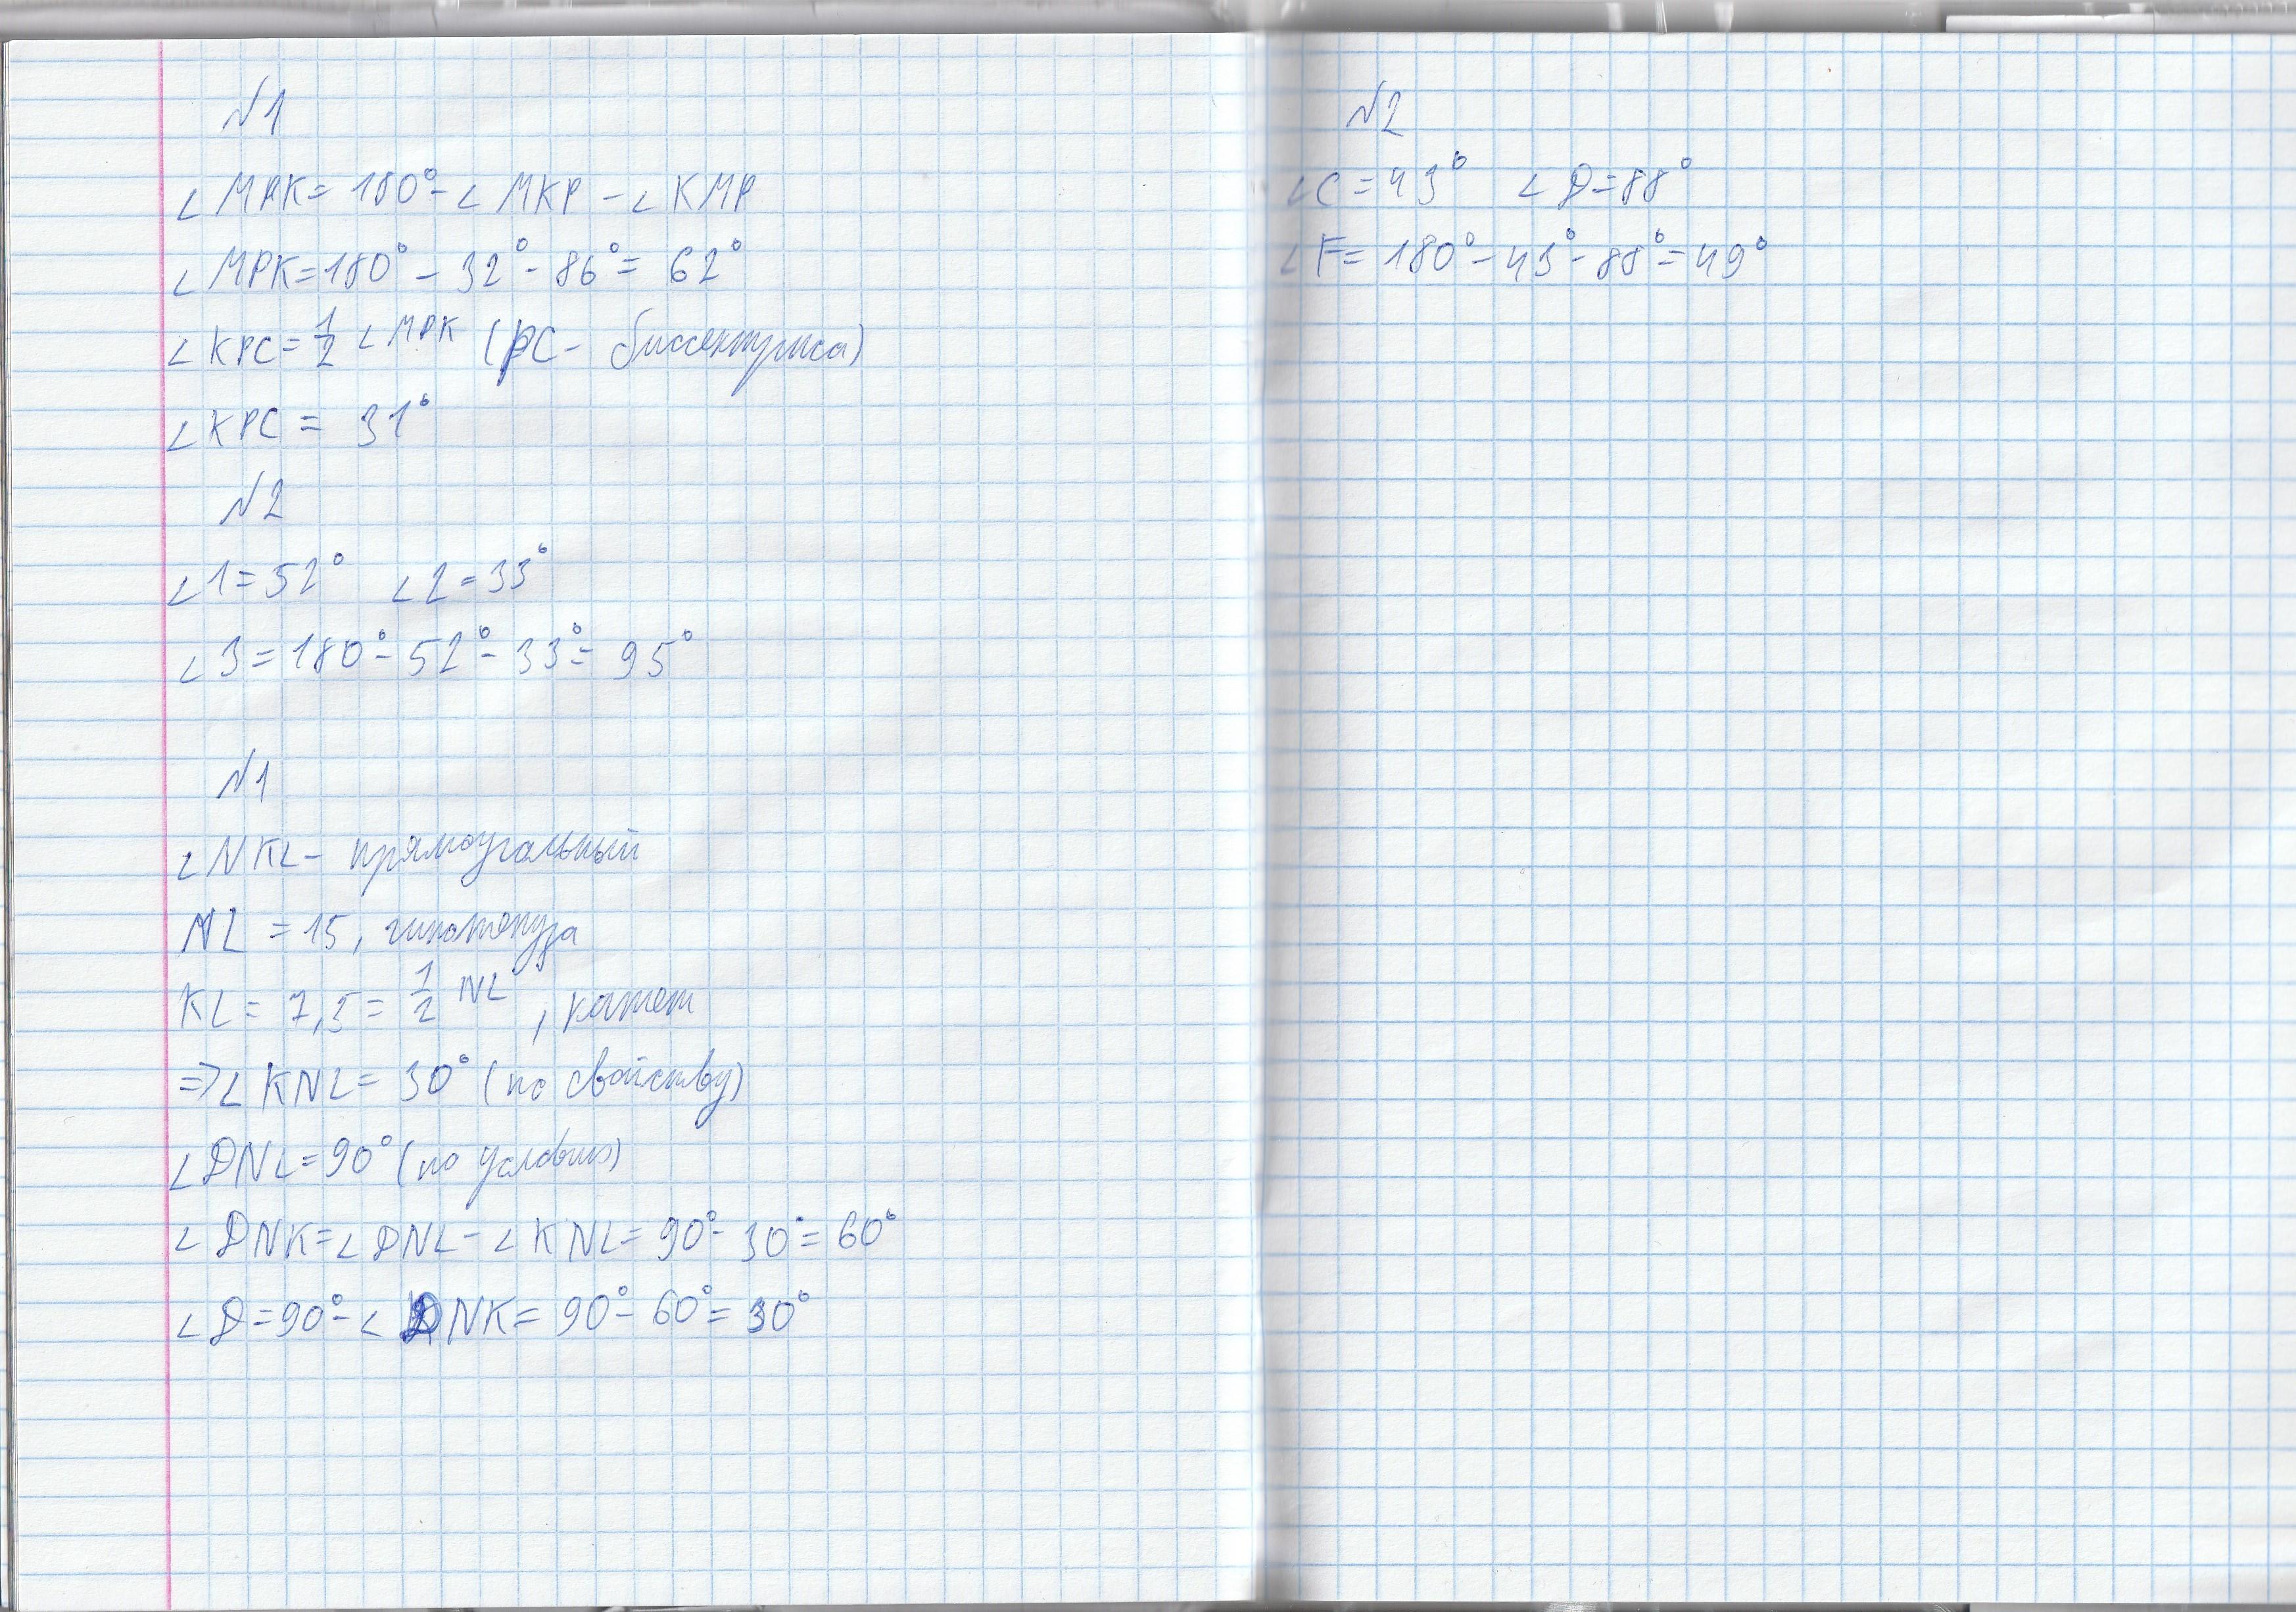 №1
∠MPK= 180°-∠MKP-∠KMP
∠MPK=180°-32°-86°=62°
∠KPC=1/2∠MPK (PC- биссектриса)
∠KPC= 31°
№2
∠1=52° ∠2=33°
∠3=180°-52°-33°=95°
№1
∠NKL- прямоугольный
NL=15, гипотенуза
KL=7,5=1/2NL, катет
=>∠KNL=30° (по свойству)
∠DNL=90° (по условию)
∠DNK=∠DNL-∠KNL=90°-30°=60°
∠D=90°-∠DNK=90°-60°=30°
№2
∠C=43° ∠D=88°
∠F=180°-43°-88°=49°